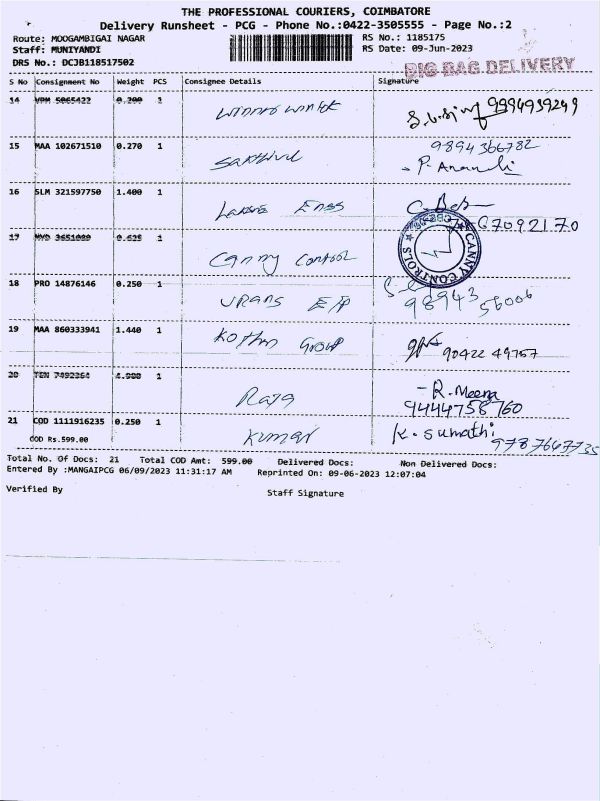 THE PROFESSIONAL COURIERS, COIMBATORE
Delivery Runsheet - PCG - Phone No.:0422-3505555 - Page No.:2
Route: MOOGAMBIGAI NAGAR RS No.: 1185175
Staff: MUNIYANDI RS Date: 09-Jun-2023
DRS No.: DCJB118517502
BIG BAG DELIVERY
S No Consignment No Weight PCS Consignee Details Signature
14 VPM 5065422 0.200 1 9994939249
15 MAA 102671510 0.270 1 Sakthivel 9894366782
P. Anandi
16 SLM 321597750 1.400 1 67092170
17 MYD 3651089 0.625 1 Canny Control
CANNY CONTROLS
18 PRO 14876146 0.250 1 98943 56006
19 MAA 860333941 1.440 1 Kothri Group 90422 49757
20 TEN 7492264 4.900 1 Raja - R. Meena
9444758760
21 COD 1111916235 0.250 1 Kumar K. Sumathi
COD Rs.599.00 9787647735
Total No. Of Docs: 21 Total COD Amt: 599.00 Delivered Docs: Non Delivered Docs:
Entered By :MANGAIPCG 06/09/2023 11:31:17 AM Reprinted On: 09-06-2023 12:07:04
Verified By Staff Signature